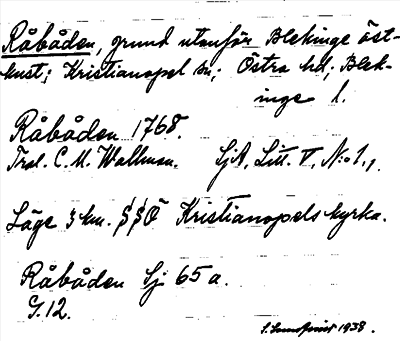 Råbåden, grund utanför Blekinge öst-
kust; Kristianopel sn; Östra hd; Blek-
inge l.
Råbåden 1768.
Trol. C. M. Wallman. SjA, Litt. V, N:o 1,,.
Läge 3 km. SSO Kristianopels kyrka.
Råbåden Sj. 65 a.
G.12.
S. Lundqvist 1938.